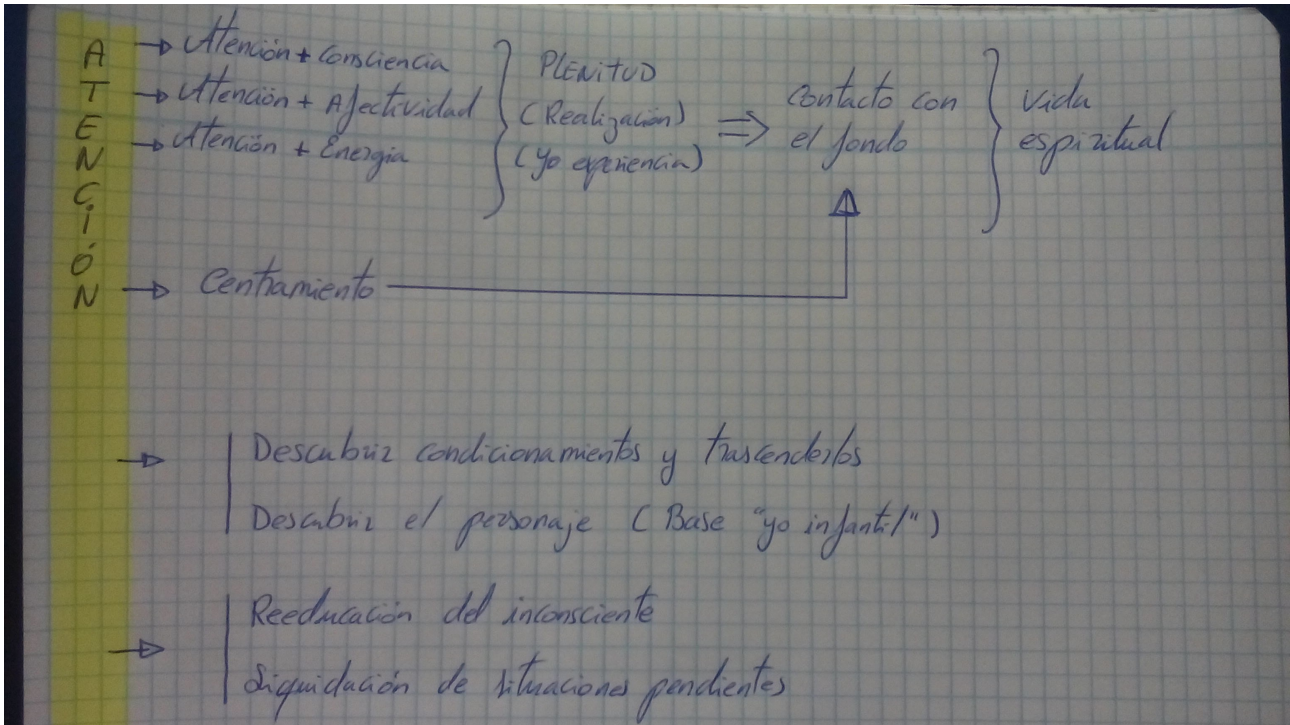 ATENCIÓN
→ Atención + Consciencia
→ Atención + Afectividad
→ Atención + Energia
PLENITUD
(Realización)
(Yo experiencia)
⇒ Contacto con
el fondo
Vida
espiritual
→ Centramiento
→ Descubrir condicionamientos y trascenderlos
Descubrir el personaje (Base "yo infantil")
→ Reeducación del inconsciente
Liquidación de situaciones pendientes